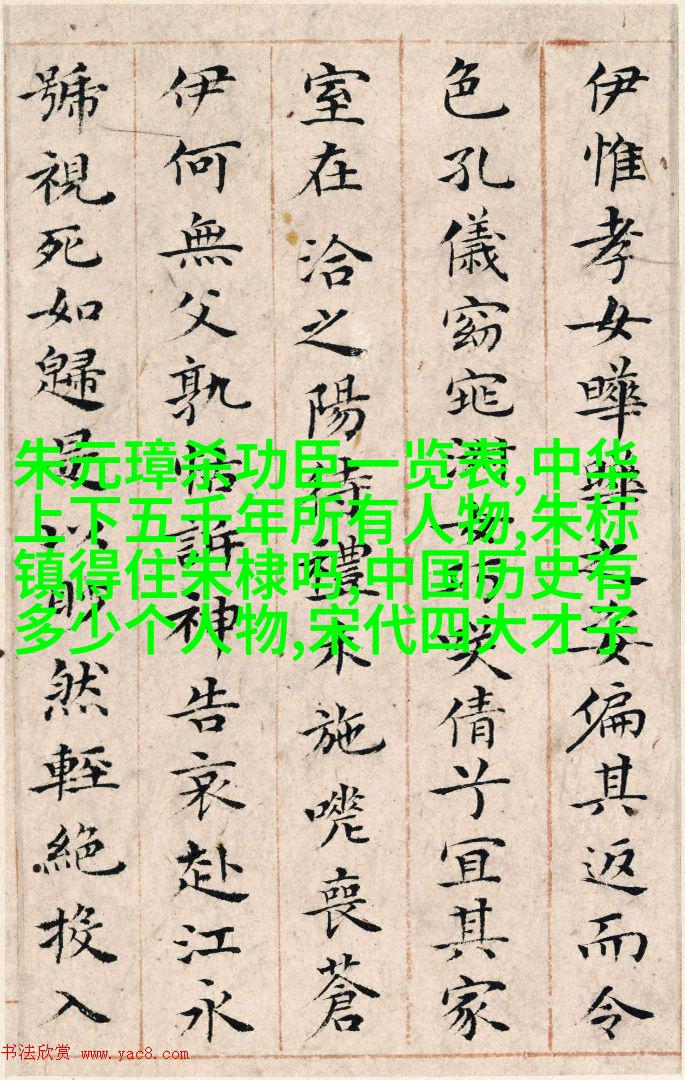 伊惟孝女曄曄之姜偏其返而令
色孔儀窈窕淑女巧笑倩兮宜其家
室在洽之陽待禮未施嗟喪蒼
伊何無父孰怙訴神告哀赴江永
號視死如歸是以眇然輕絕投入
朱元璋杀功臣一览表,中华
上下五千年所有人物,朱标
镇得住朱棣吗,中国历史有
多少个人物,宋代四大才子
书法欣赏 www.yac8.com